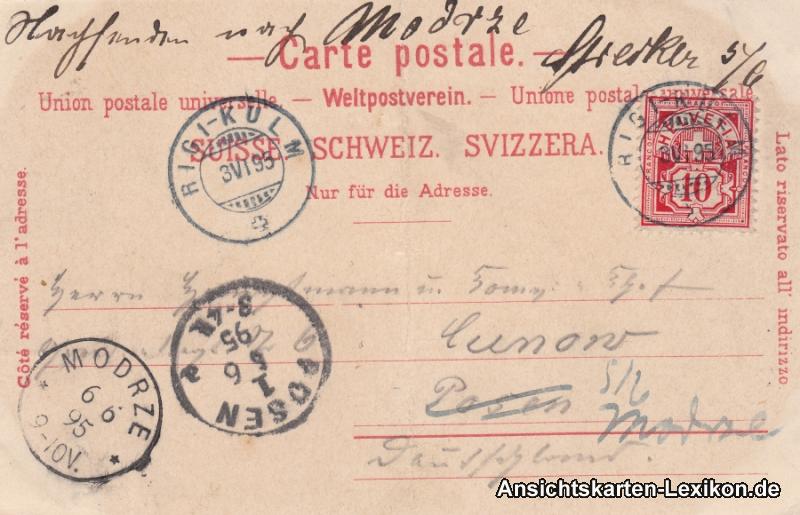 Nachsenden nach Modrze
5/6
— Carte postale. —
Union postale universelle. — Weltpostverein. — Unione postale universale
SUISSE. SCHWEIZ. SVIZZERA.
Nur für die Adresse.
Côté réservé à l'adresse.
Lato riservato all' indirizzo
RIGI-KULM
3 VI 95
RIGI-KULM
3 VI 95
HELVETIA
FRANCO
10
Herrn
Cunow
Posen
Modrze
Deutschland.
POSEN
1
6
95
* MODRZE *
6 6
95
9-10V.
Ansichtskarten-Lexikon.de